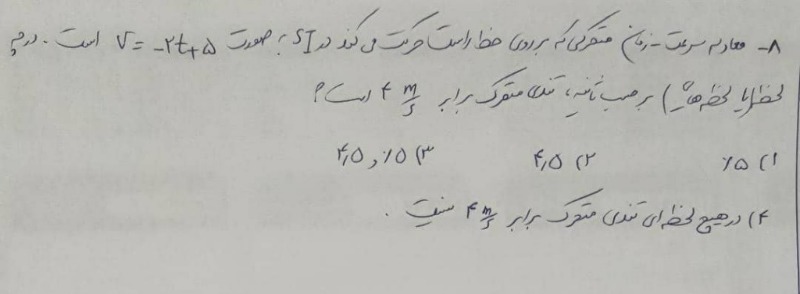 ۸- معادله سرعت - زمان متحرکی که بر روی خط راست حرکت می کند در SI به صورت V = -۲t + ۵ است. در چه
لحظه (یا لحظه هایی) بر حسب ثانیه، تندی متحرک برابر ۴ m/s است؟
۱) ۰٫۵ ۲) ۴٫۵ ۳) ۰٫۵ و ۴٫۵
۴) در هیچ لحظه ای تندی متحرک برابر ۴ m/s نیست.